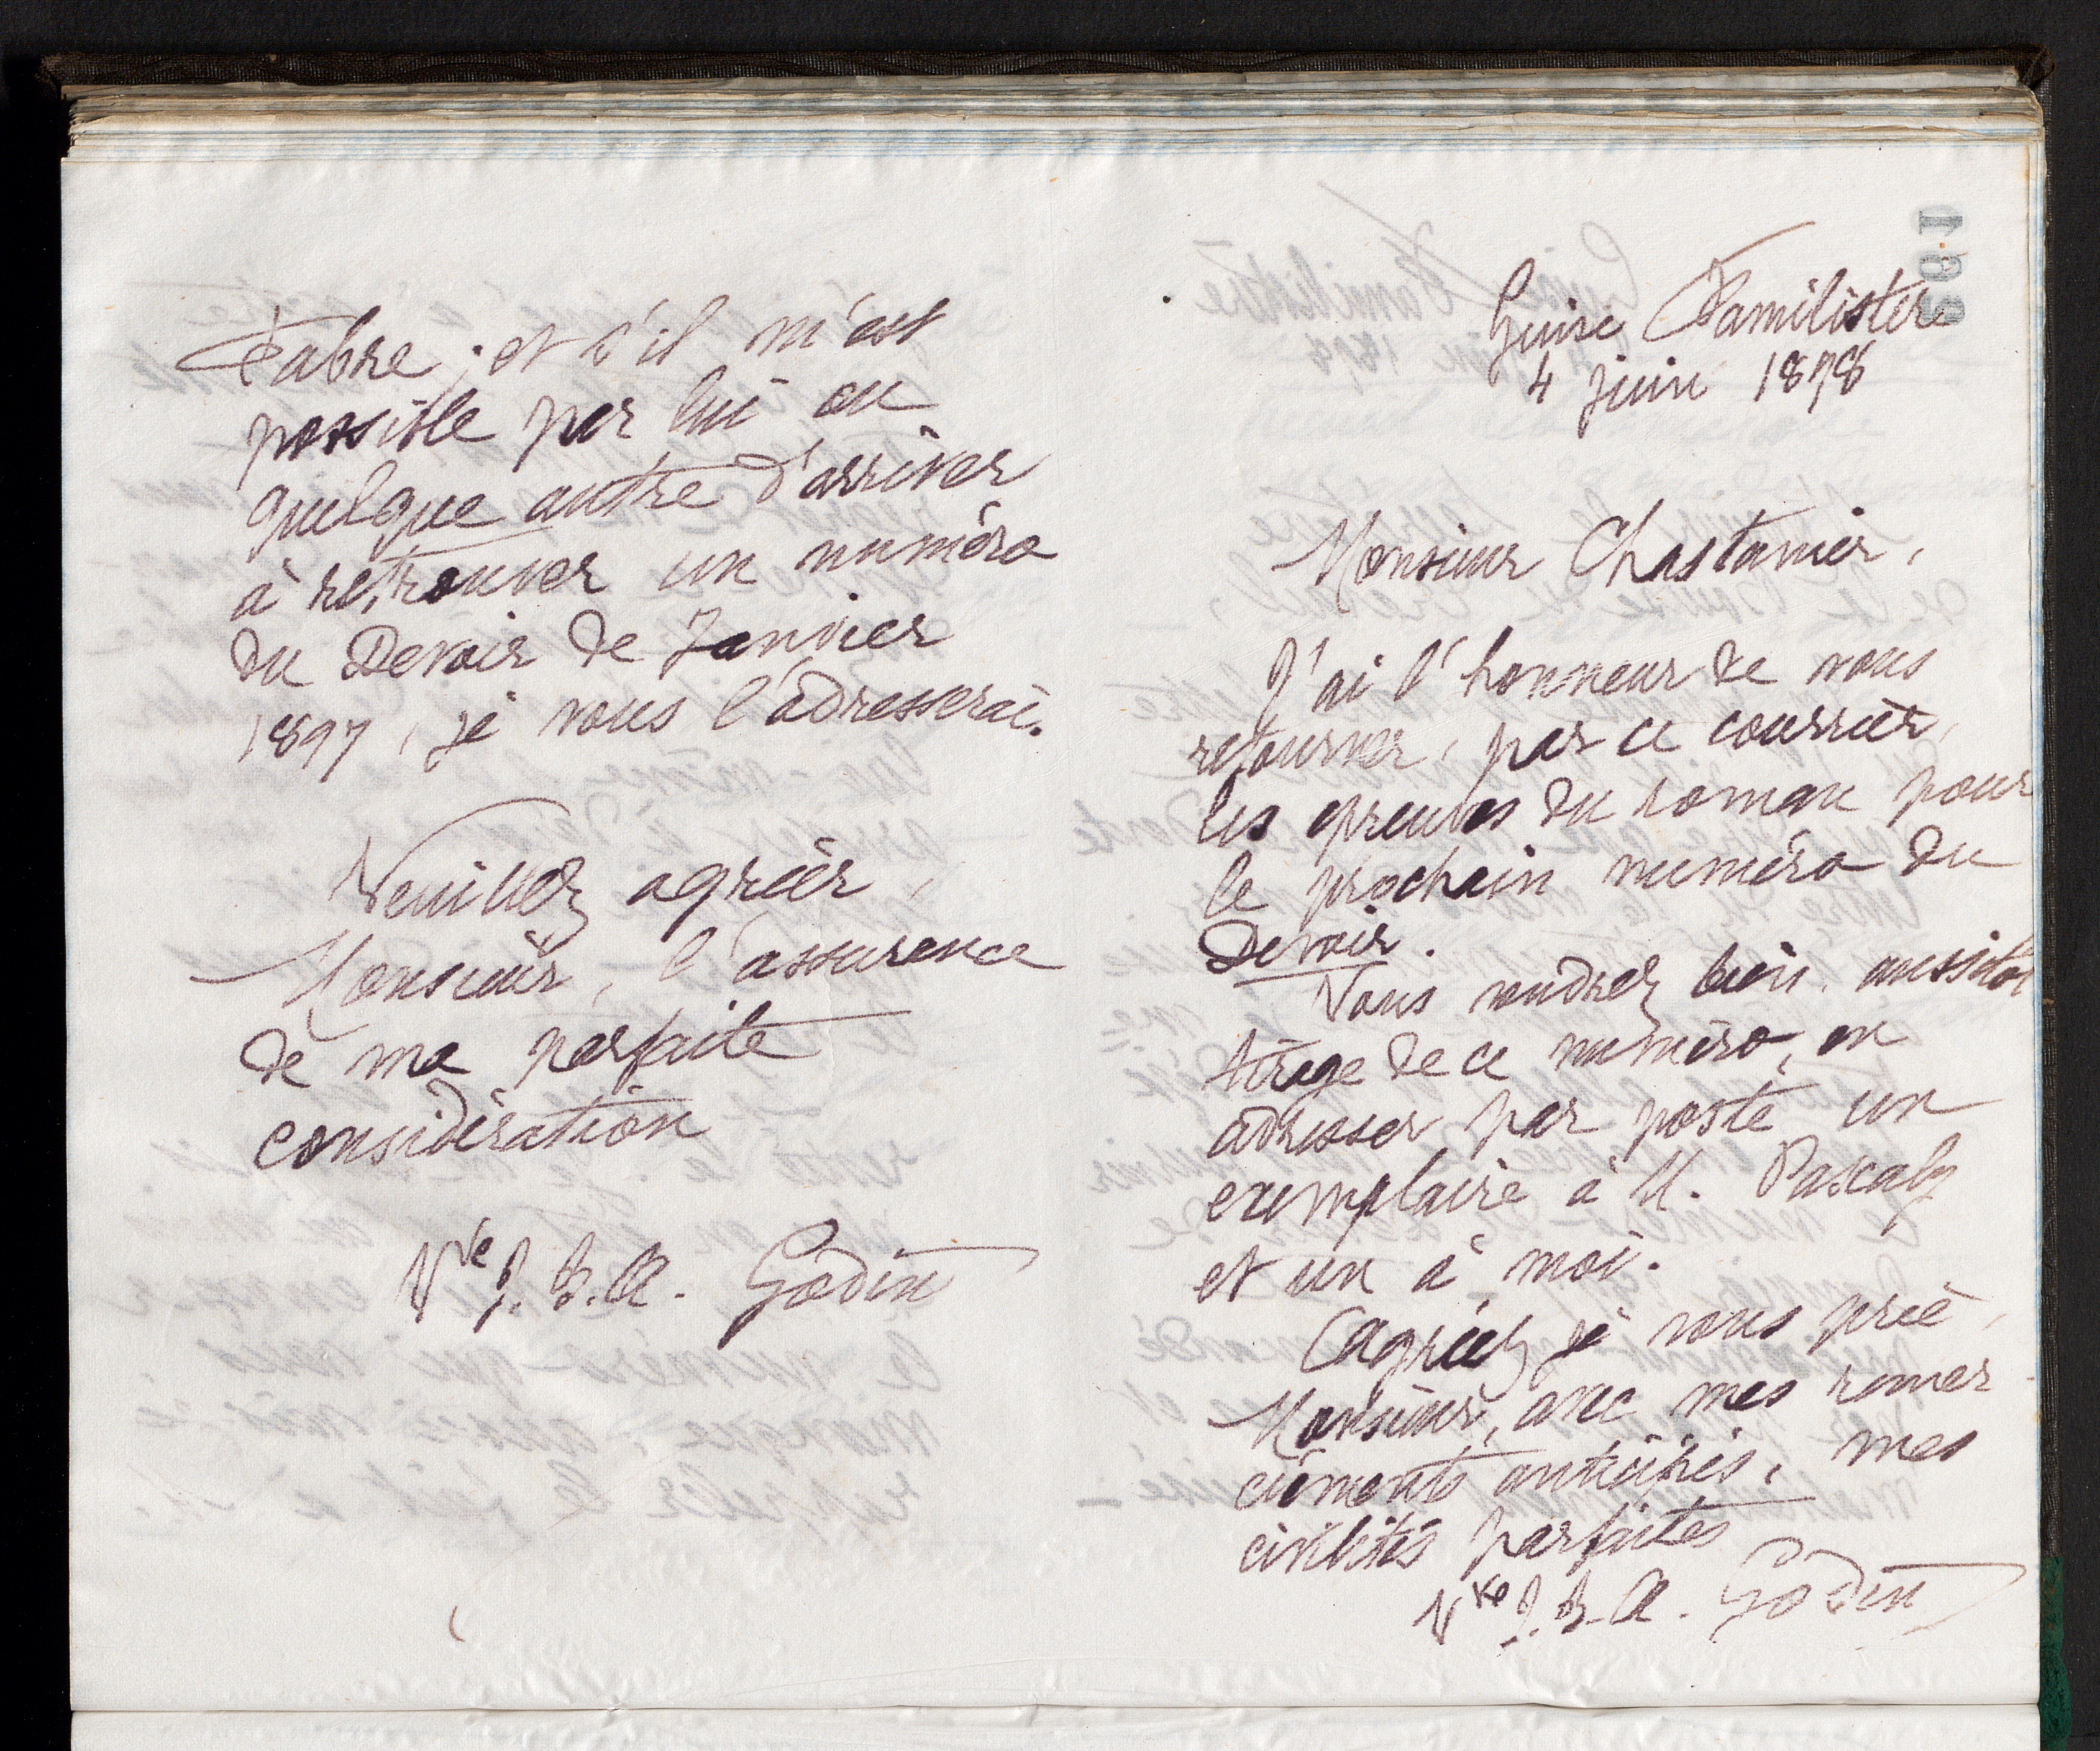 Fabre ; et s'il m'est
possible par lui ou
quelque autre d'arriver
à retrouver un numéro
du Devoir de Janvier
1897, je vous l'adresserai.
Veuillez agréer,
Monsieur, l'assurance
de ma parfaite
considération
Vve J. B. A. Godin
199
Guise Familistère
4 juin 1898
Monsieur Chastanier,
J'ai l'honneur de vous
retourner, par ce courrier,
les épreuves du roman pour
le prochain numéro du
Devoir.
Vous voudrez bien, aussitôt
tirage de ce numéro, en
adresser par poste un
exemplaire à M. Pascaly
et un à moi.
Agréez je vous prie,
Monsieur, avec mes remer-
ciements anticipés, mes
civilités parfaites
Vve J. B. A. Godin